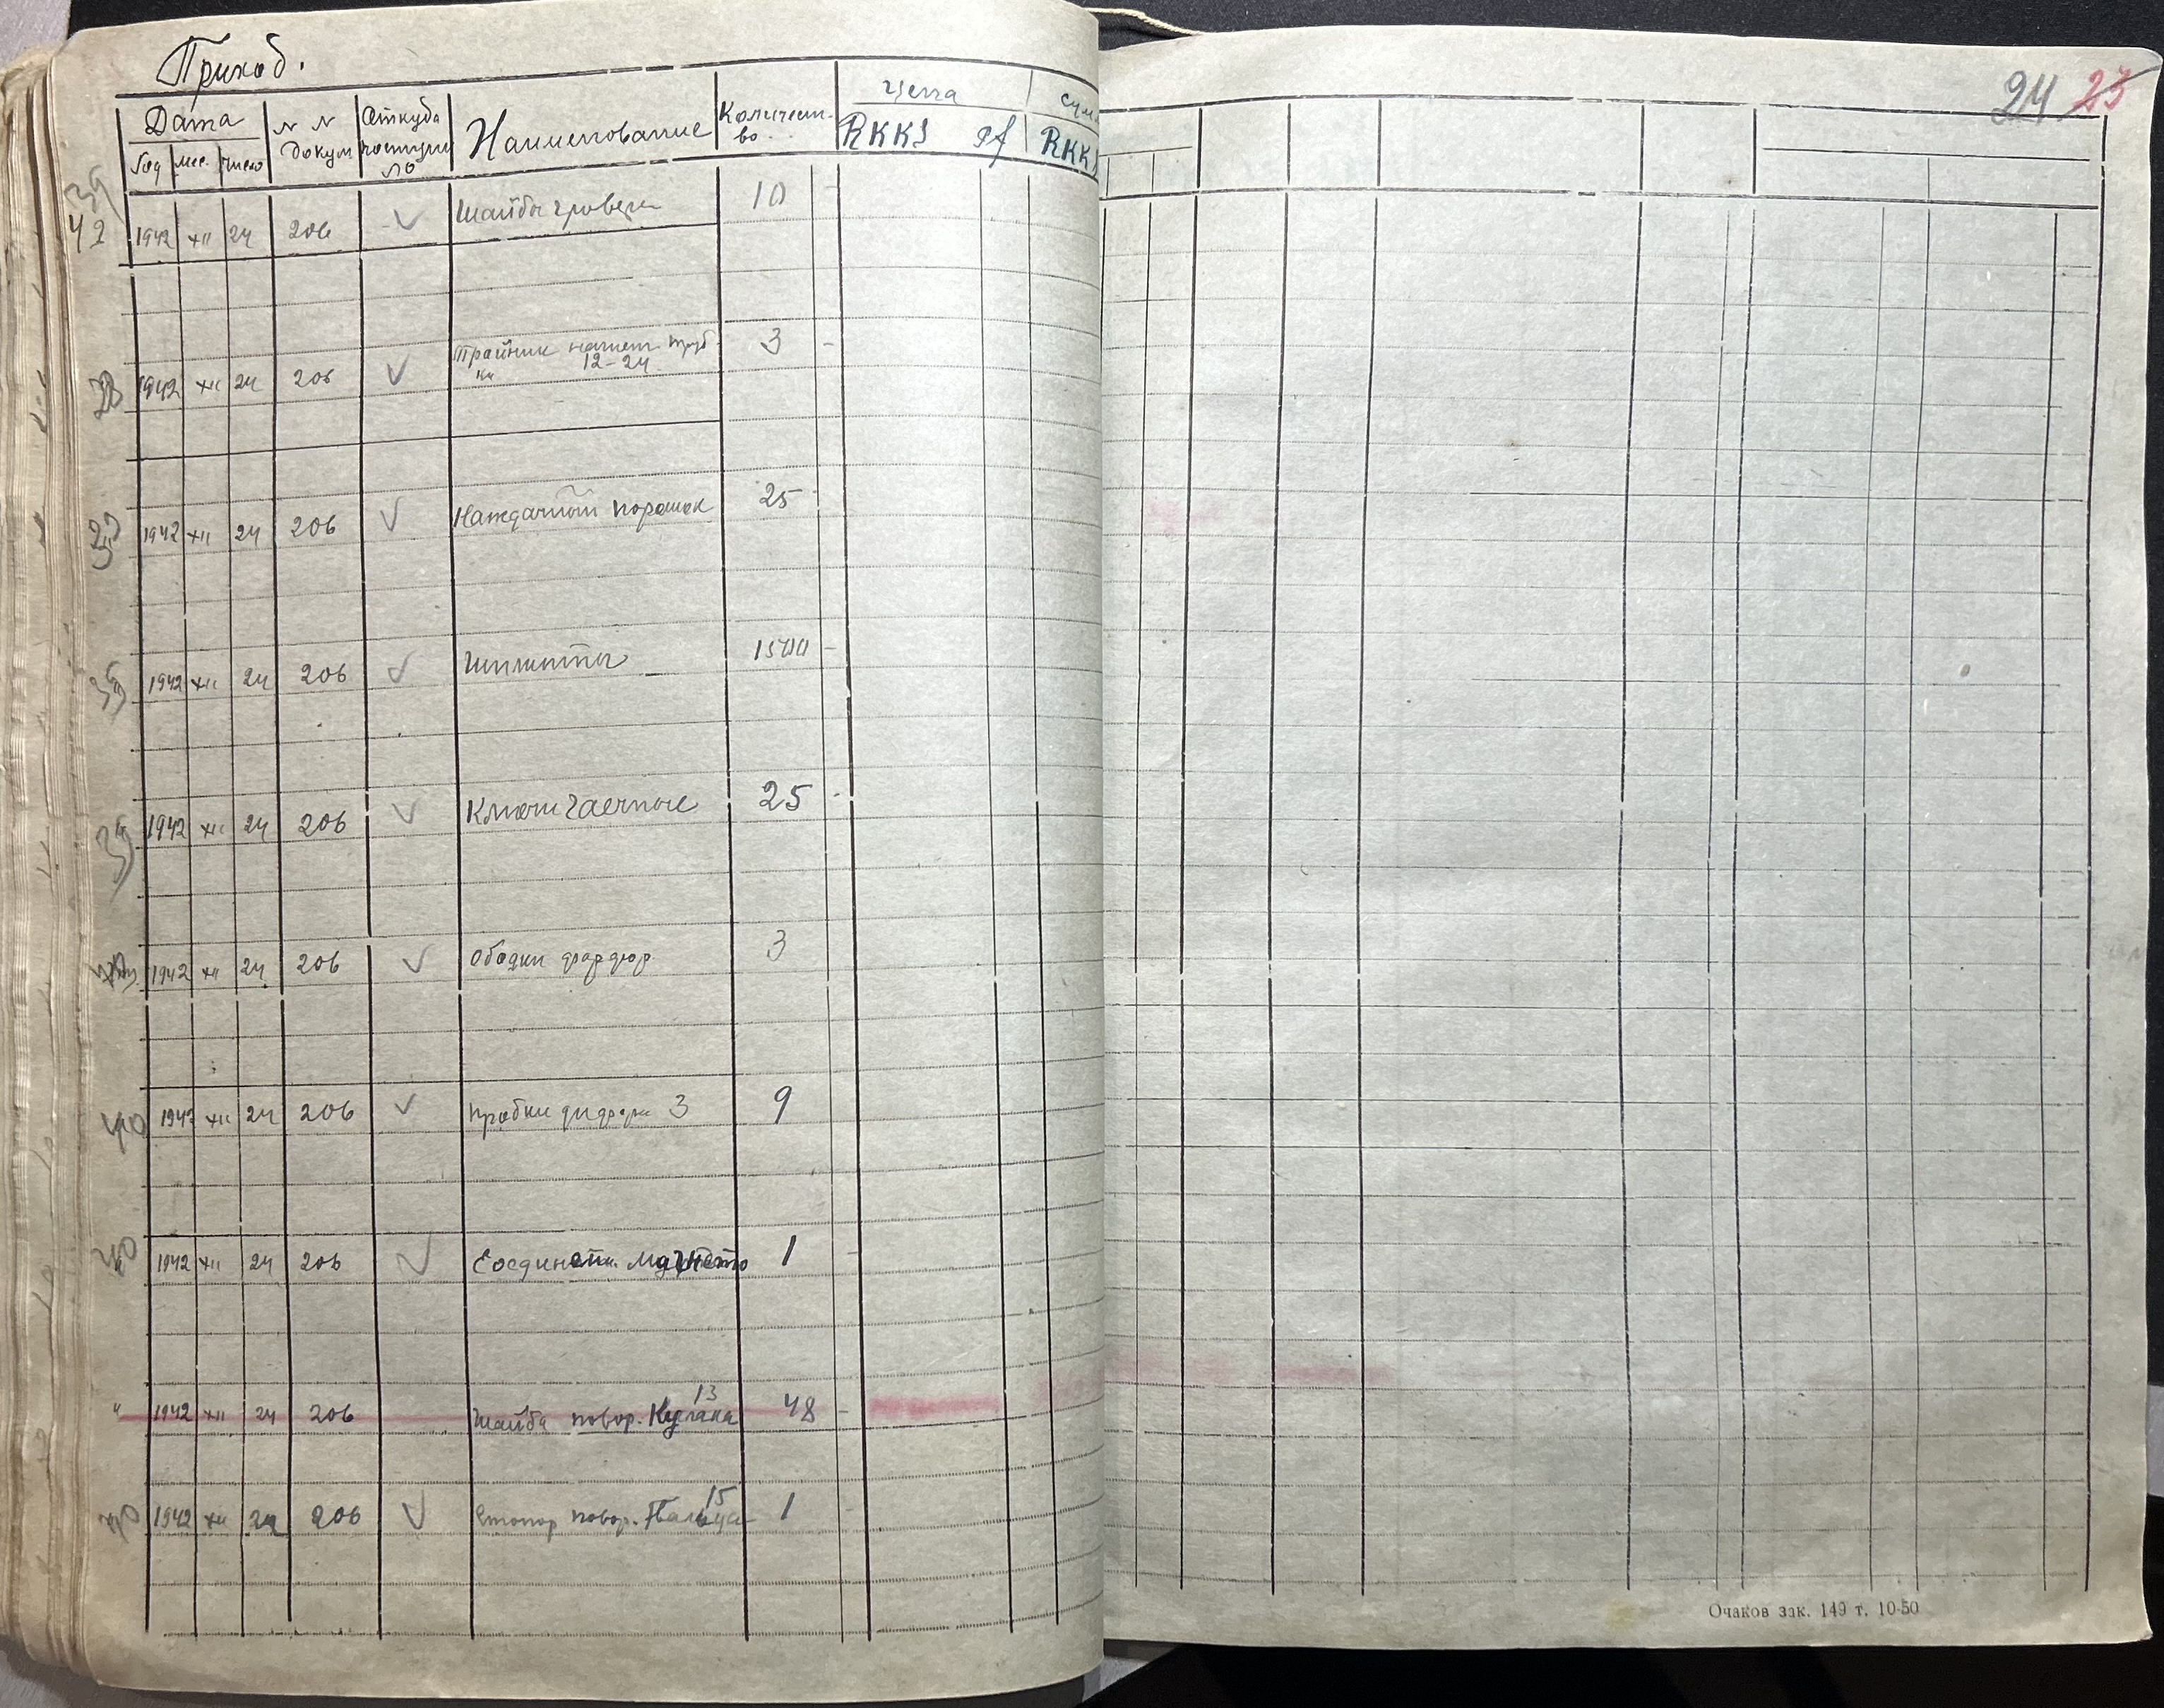 Приход.
24 23
Дата
N N докум
Откуда поступило
Наименование
Количест-во
Цена
RKKS Pf
RKKS
Год мес. число
39
42 1942 XII 24 206 V Шайбы гровера 10 -
1942 XII 24 206 V Трайник 3 -
12-24
1942 XII 24 206 V Наждачный порошок 25
39 1942 XII 24 206 V Шплинты -
39 1942 XII 24 206 V Ключи гаечные 25 -
1942 XII 24 206 V Ободки 3
40 1942 XII 24 206 V Пробки 3 9
40 1942 XII 24 206 V Соединит. Магнето 1
13
" 1942 XII 24 206 Шайба повор. Кулака 48 -
15
40 1942 XII 24 206 V Стопор повор. Пальца 1
Очаков зак. 149 т. 10-50